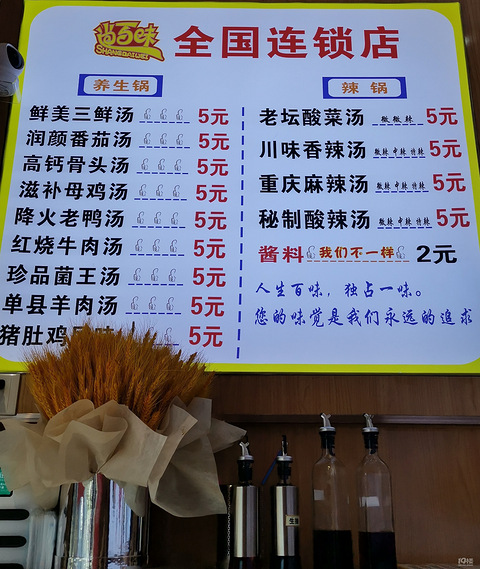 尚百味
SHANGBAIWEI
全国连锁店
养生锅
鲜美三鲜汤 5元
润颜番茄汤 5元
高钙骨头汤 5元
滋补母鸡汤 5元
降火老鸭汤 5元
红烧牛肉汤 5元
珍品菌王汤 5元
单县羊肉汤 5元
猪肚鸡 5元
辣锅
老坛酸菜汤 微微辣 5元
川味香辣汤 微辣 中辣 特辣 5元
重庆麻辣汤 微辣 中辣 特辣 5元
秘制酸辣汤 微辣 中辣 特辣 5元
酱料 我们不一样 2元
人生百味，独占一味。
您的味觉是我们永远的追求